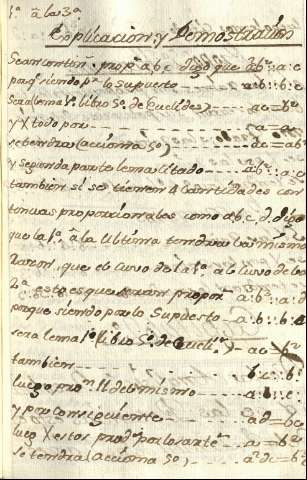 1ª â la 3ª
Explicacion y Demostrasion
Sean contin. propª a, b, c digo que â b² : : a : c
porqᵉ siendo pʳ lo supuesto a : b : : b : c
sera lema 1º libro 5º de Euclides) ac = b²
y X todo por a = a
se tendra (accioma 5º) ac = ab²
y segunda parte lema sitado : b² : : a : c
tambien si se tienen 4 cantidades con
tinuas proporcionales como a b c, d, digo
que la 1ª â la ultima tendra la misma
Razon, que el cuvo de la 1ª al cuvo de la
2ª esto es que seran propor a : b³ : : a :
porque siendo por lo Supuesto a : b : : b : c
sera lema 1º (libro 5º de Eucliˢ) ac = b²
tambien b : c : : b²
luego proⁿ 11 del mismo a : b : : c :
y por consiguiente ad = bc
luego X estos prodˢ por los ante a = b²
se tendra (accioma 5º) a²dc = b³